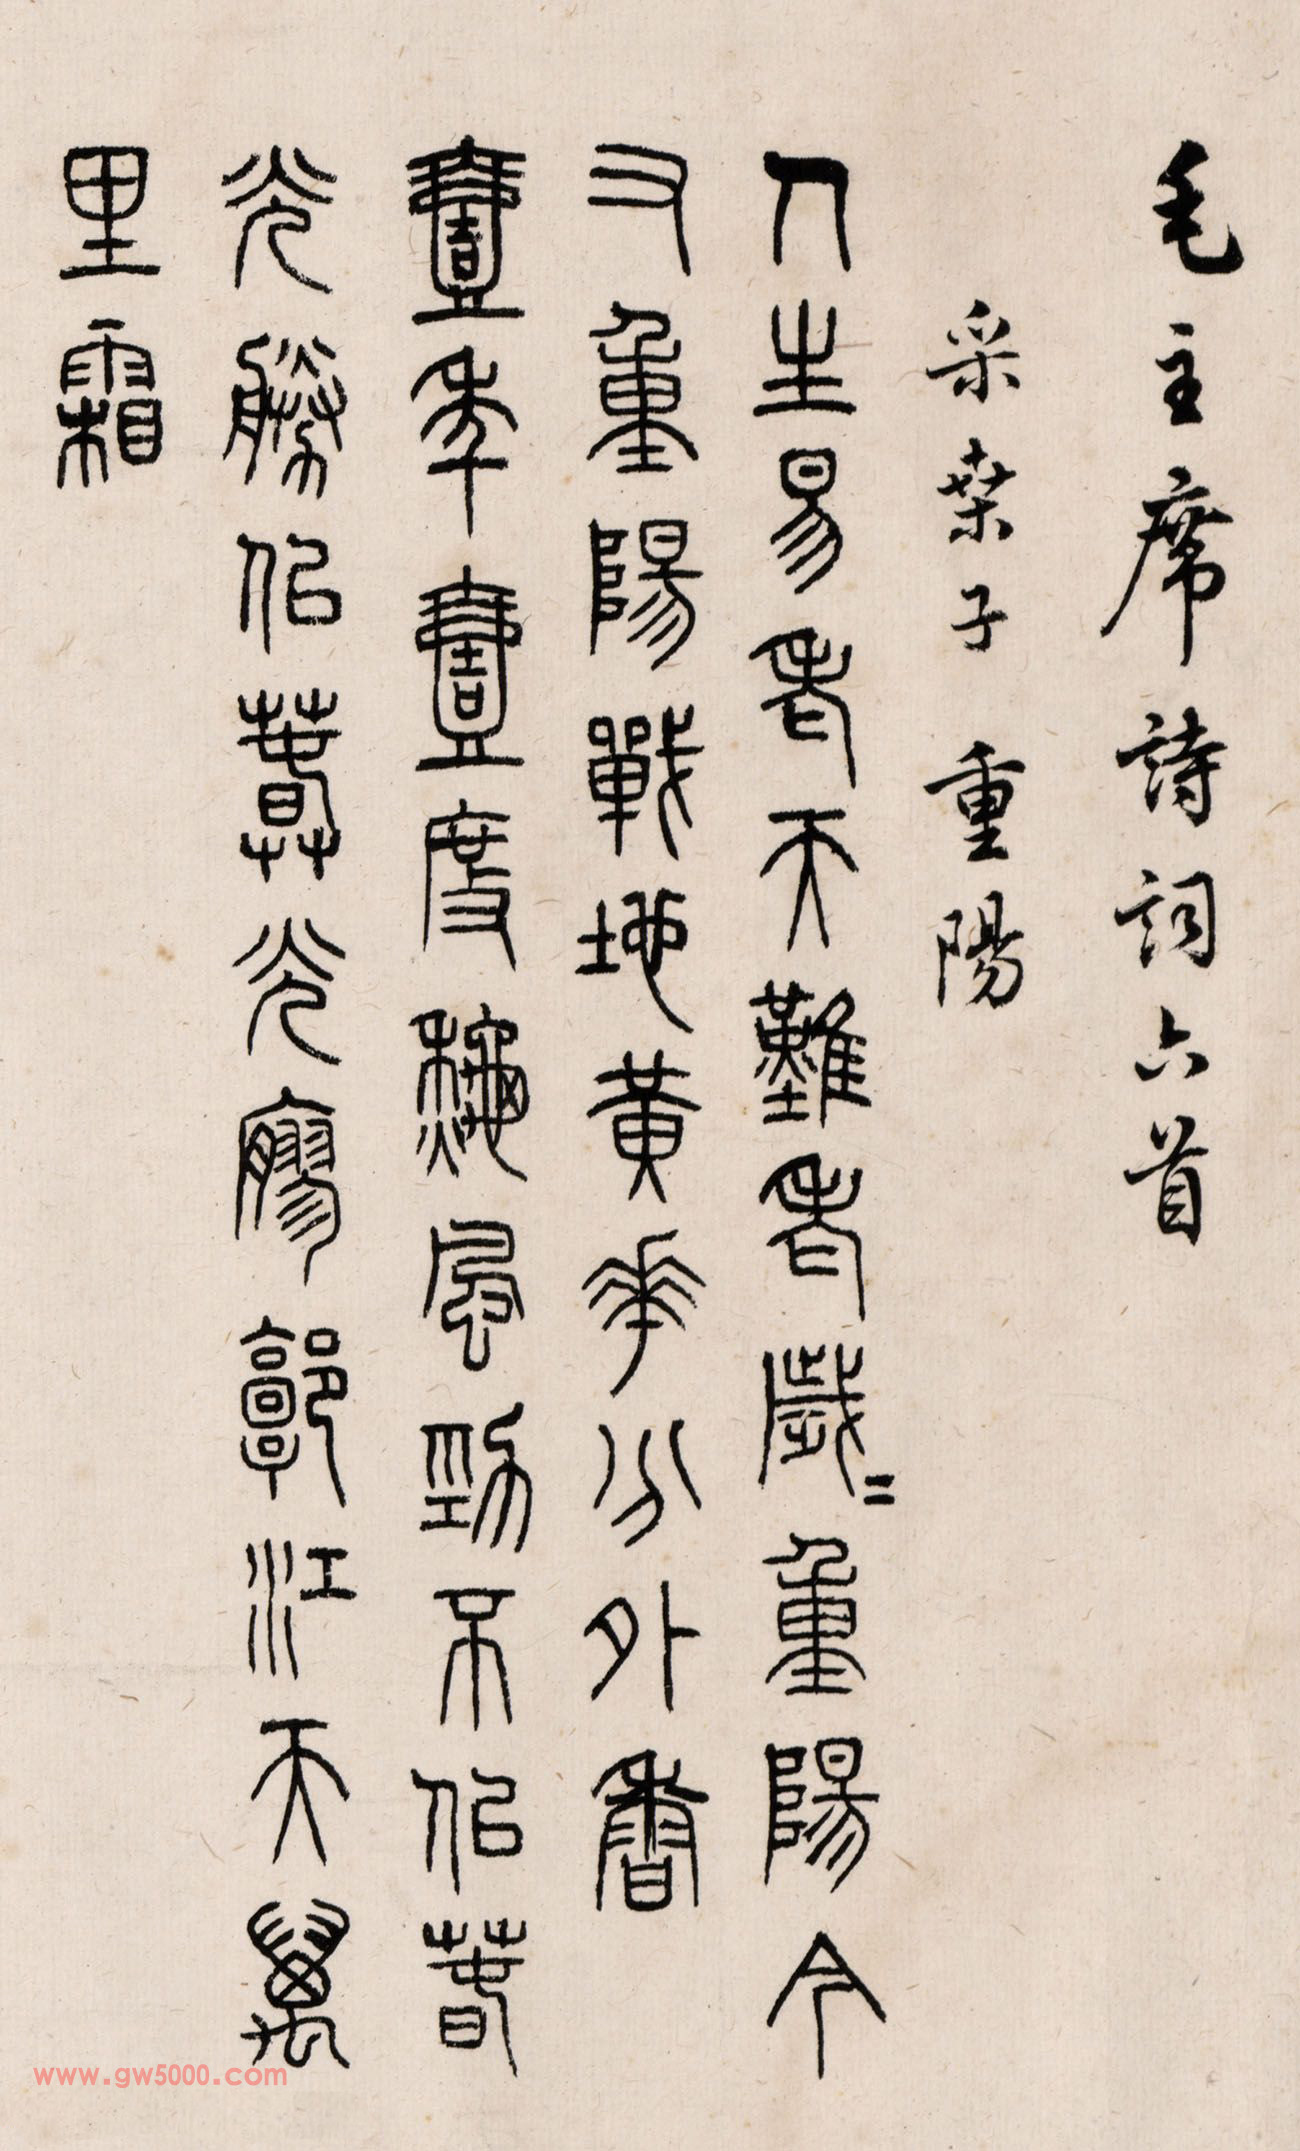 毛主席詩詞六首
采桒子 重陽
人生易老天難老歲=重陽今
又重陽戰地黃華分外香
壹年壹度龝風勁不佀春
光勝佀春光廖郭江天萬
里霜
www.gw5000.com